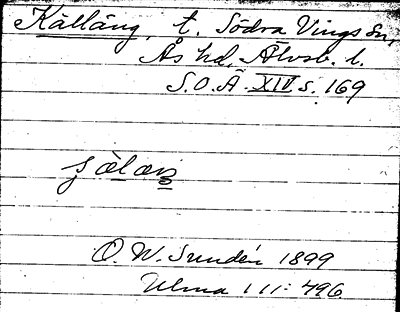 Källäng, t. Södra Vings sn,
Ås hd, Älvsb. l.
S.O.Ä. XIV s. 169
O. W. Sundén 1899
Ulma 111: 496